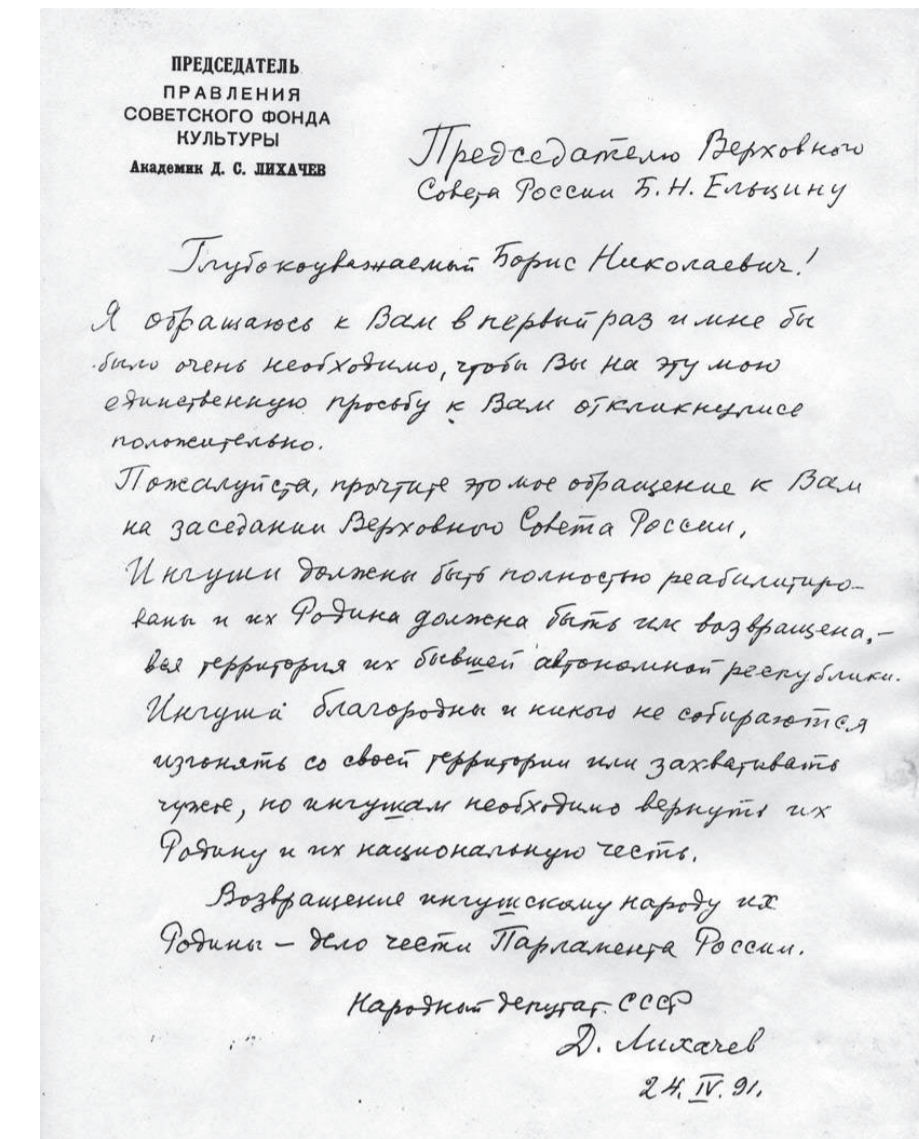 ПРЕДСЕДАТЕЛЬ
ПРАВЛЕНИЯ
СОВЕТСКОГО ФОНДА
КУЛЬТУРЫ
Академик Д. С. ЛИХАЧЕВ
Председателю Верховного
Совета России Б. Н. Ельцину
Глубокоуважаемый Борис Николаевич!
Я обращаюсь к Вам в первый раз и мне бы
было очень необходимо, чтобы Вы на эту мою
единственную просьбу к Вам откликнулись
положительно.
Пожалуйста, прочтите это мое обращение к Вам
на заседании Верховного Совета России.
Ингуши должны быть полностью реабилитиро-
ваны и их Родина должна быть им возвращена, –
вся территория их бывшей автономной республики.
Ингуши благородны и никого не собираются
изгонять со своей территории или захватывать
чужое, но ингушам необходимо вернуть их
Родину и их национальную честь.
Возвращение ингушскому народу их
Родины – дело чести Парламента России.
Народный депутат СССР
Д. Лихачев
24. IV. 91.